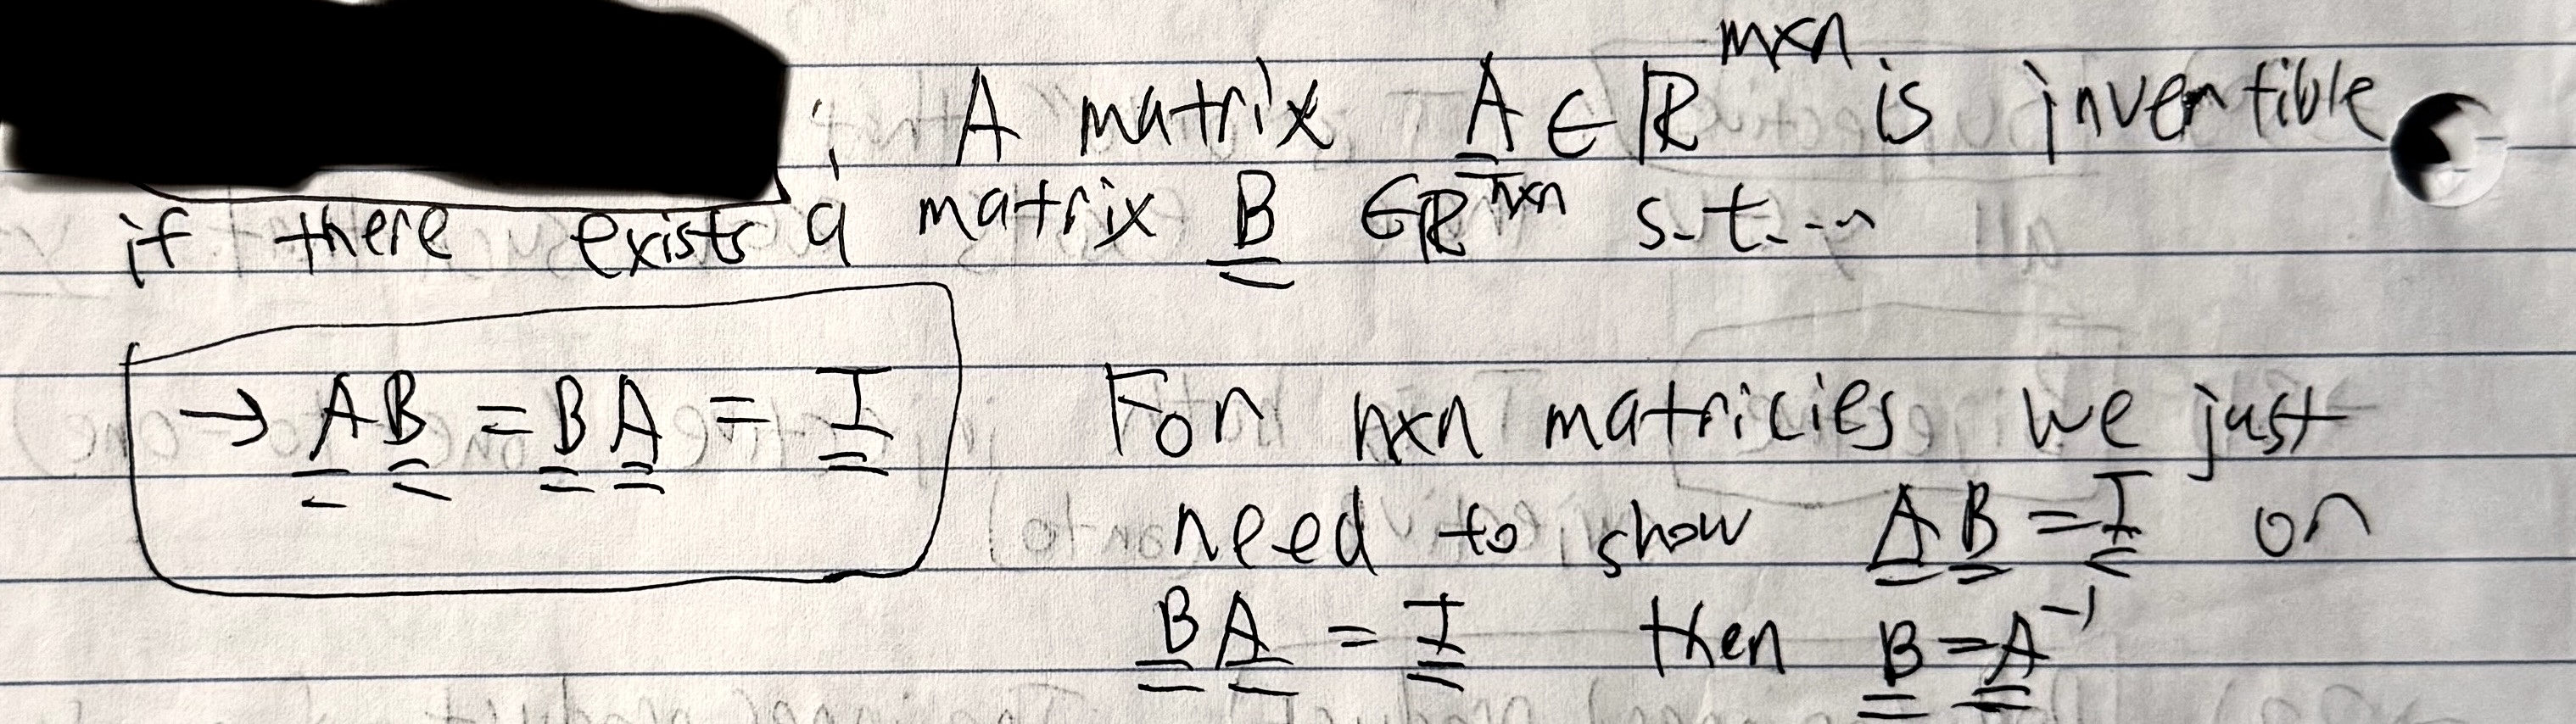 : A matrix A ∈ ℝ^mxn is invertible
if there exists a matrix B ∈ ℝ^nxn s.t...
→ AB = BA = I
For nxn matricies we just
need to show AB = I or
BA = I then B = A^-1